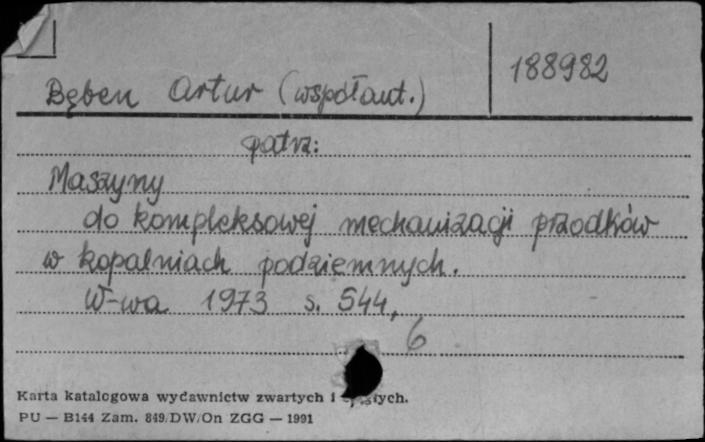 188982
Bęben Artur (współaut.)
patrz:
Maszyny
do kompleksowej mechanizacji przodków
w kopalniach podziemnych.
W-wa 1973 s. 544,
6
Karta katalogowa wydawnictw zwartych i
PU — B144 Zam. 849/DW/On ZGG — 1991